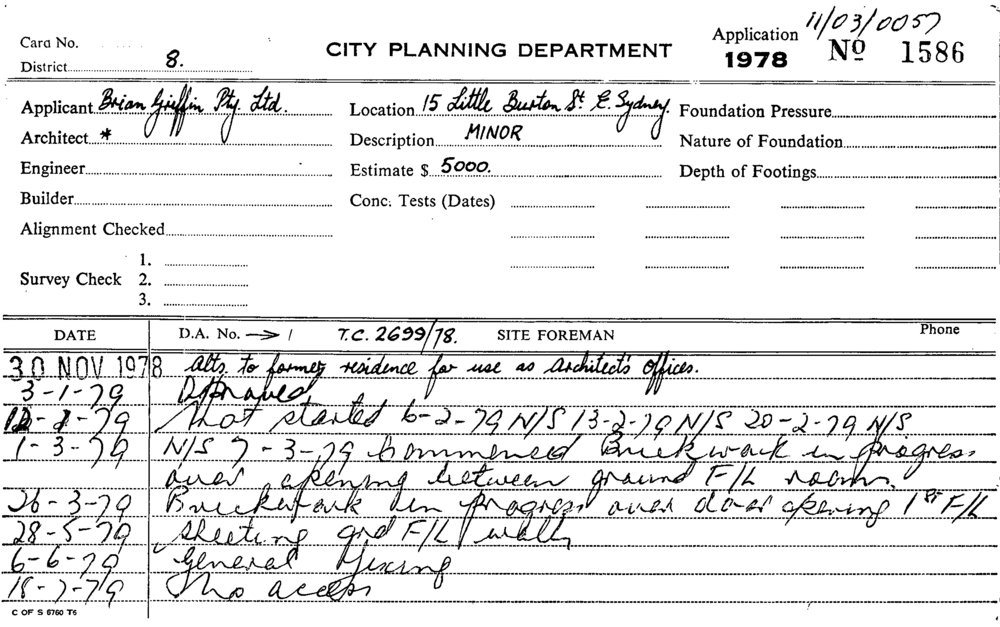 11/03/0057
Card No.
CITY PLANNING DEPARTMENT
Application
1978 No 1586
District 8.
Applicant Brian Griffin Pty. Ltd.
Location 15 Little Burton St. E. Sydney.
Foundation Pressure
Architect *
Description MINOR
Nature of Foundation
Engineer
Estimate $ 5000.
Depth of Footings
Builder
Conc. Tests (Dates)
Alignment Checked
Survey Check 1.
2.
3.
DATE D.A. No. → / T.C. 2699/78. SITE FOREMAN Phone
30 NOV 1978 Alts. to former residence for use as Architect's Offices.
3-1-79 Approved
-79 Not started 6-2-79 N/S 13-2-79 N/S 20-2-79 N/S
1-3-79 N/S 7-3-79 Commenced Brickwork in progress
over opening between ground F/L rooms.
26-3-79 Brickwork in progress over door opening 1st F/L
28-5-79 sheeting grd F/L walls
6-6-79 General Fixing
18-7-79 No access
C OF S 6760 T6